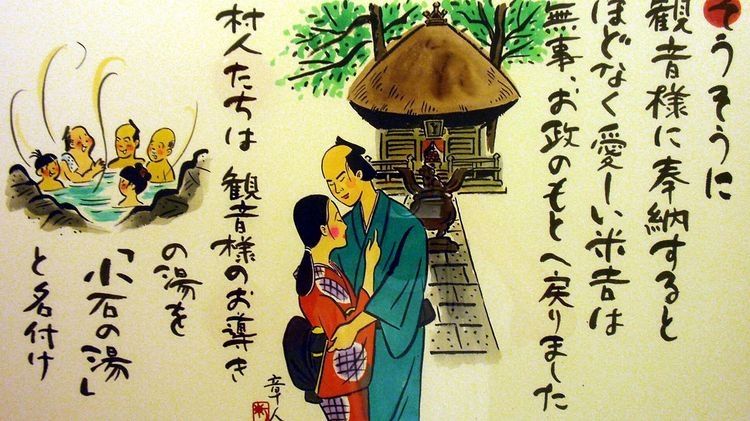 そうそうに
観音様に奉納すると
ほどなく愛しい米吉は
無事、お政のもとへ戻りました
村人たちは 観音様のお導き
の湯を
「小石の湯」
と名付け
章人